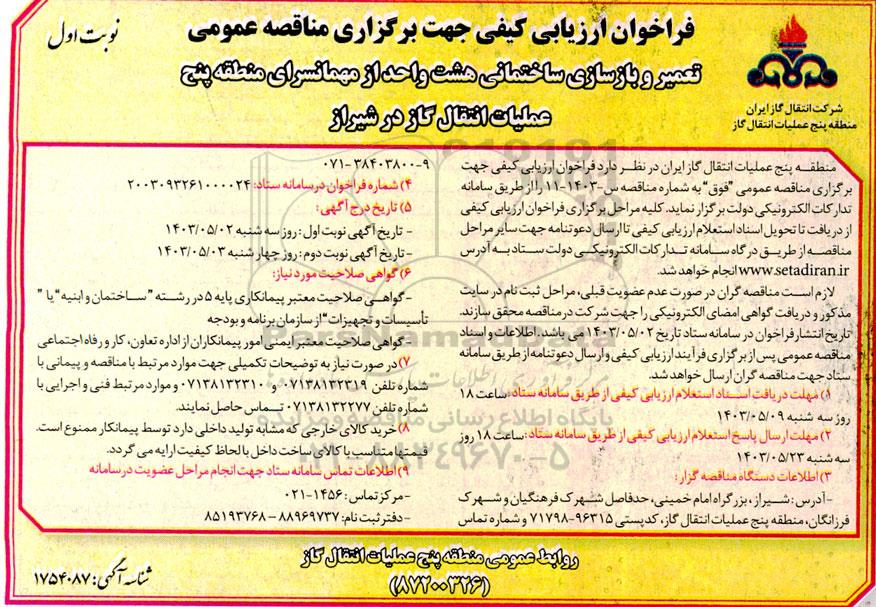 فراخوان ارزیابی کیفی جهت برگزاری مناقصه عمومی
نوبت اول
تعمیر و بازسازی ساختمانی هشت واحد از مهمانسرای منطقه پنج
عملیات انتقال گاز در شیراز
شرکت انتقال گاز ایران
منطقه پنج عملیات انتقال گاز
منطقه پنج عملیات انتقال گاز ایران در نظر دارد فراخوان ارزیابی کیفی جهت
برگزاری مناقصه عمومی "فوق" به شماره مناقصه س-۱۴۰۳-۱۱ را از طریق سامانه
تدارکات الکترونیکی دولت برگزار نماید. کلیه مراحل برگزاری فراخوان ارزیابی کیفی
از دریافت تا تحویل اسناد استعلام ارزیابی کیفی تا ارسال دعوتنامه جهت سایر مراحل
مناقصه از طریق درگاه سامانه تدارکات الکترونیکی دولت ستاد به آدرس
www.setadiran.ir انجام خواهد شد.
لازم است مناقصه گران در صورت عدم عضویت قبلی، مراحل ثبت نام در سایت
مذکور و دریافت گواهی امضای الکترونیکی را جهت شرکت در مناقصه محقق سازند.
تاریخ انتشار فراخوان در سامانه ستاد تاریخ ۱۴۰۳/۰۵/۰۲ می باشد. اطلاعات و اسناد
مناقصه عمومی پس از برگزاری فرآیند ارزیابی کیفی و ارسال دعوتنامه از طریق سامانه
ستاد جهت مناقصه گران ارسال خواهد شد.
۱) مهلت دریافت اسناد استعلام ارزیابی کیفی از طریق سامانه ستاد: ساعت ۱۸
روز سه شنبه ۱۴۰۳/۰۵/۰۹
۲) مهلت ارسال پاسخ استعلام ارزیابی کیفی از طریق سامانه ستاد: ساعت ۱۸ روز
سه شنبه ۱۴۰۳/۰۵/۲۳
۳) اطلاعات دستگاه مناقصه گزار:
-آدرس: شیراز، بزرگراه امام خمینی، حدفاصل شهرک فرهنگیان و شهرک
فرزانگان، منطقه پنج عملیات انتقال گاز، کدپستی ۹۶۳۱۵-۷۱۷۹۸ و شماره تماس
۰۷۱-۳۸۴۰۳۸۰۰-۹
۴) شماره فراخوان در سامانه ستاد: ۲۰۰۳۰۹۳۲۶۱۰۰۰۰۲۴
۵) تاریخ درج آگهی:
- تاریخ آگهی نوبت اول: روز سه شنبه ۱۴۰۳/۰۵/۰۲
- تاریخ آگهی نوبت دوم: روز چهارشنبه ۱۴۰۳/۰۵/۰۳
۶) گواهی صلاحیت مورد نیاز:
-گواهی صلاحیت معتبر پیمانکاری پایه ۵ در رشته "ساختمان و ابنیه" یا "
تأسیسات و تجهیزات" از سازمان برنامه و بودجه
-گواهی صلاحیت معتبر ایمنی امور پیمانکاران از اداره تعاون، کار و رفاه اجتماعی
۷) در صورت نیاز به توضیحات تکمیلی جهت موارد مرتبط با مناقصه و پیمانی با
شماره تلفن ۰۷۱۳۸۱۳۲۳۱۹ و ۰۷۱۳۸۱۳۲۳۱۰ و موارد مرتبط فنی و اجرایی با
شماره تلفن ۰۷۱۳۸۱۳۲۲۷۷ تماس حاصل نمایند.
۸) خرید کالای خارجی که مشابه تولید داخلی دارد توسط پیمانکار ممنوع است.
قیمتها متناسب با کالای ساخت داخل با لحاظ کیفیت ارایه می گردد.
۹) اطلاعات تماس سامانه ستاد جهت انجام مراحل عضویت در سامانه
-مرکز تماس: ۱۴۵۶-۰۲۱
-دفتر ثبت نام: ۸۸۹۶۹۷۳۷ - ۸۵۱۹۳۷۶۸
روابط عمومی منطقه پنج عملیات انتقال گاز
(۸۷۲۰۰۳۲۶)
شناسه آگهی: ۱۷۵۴۰۸۷